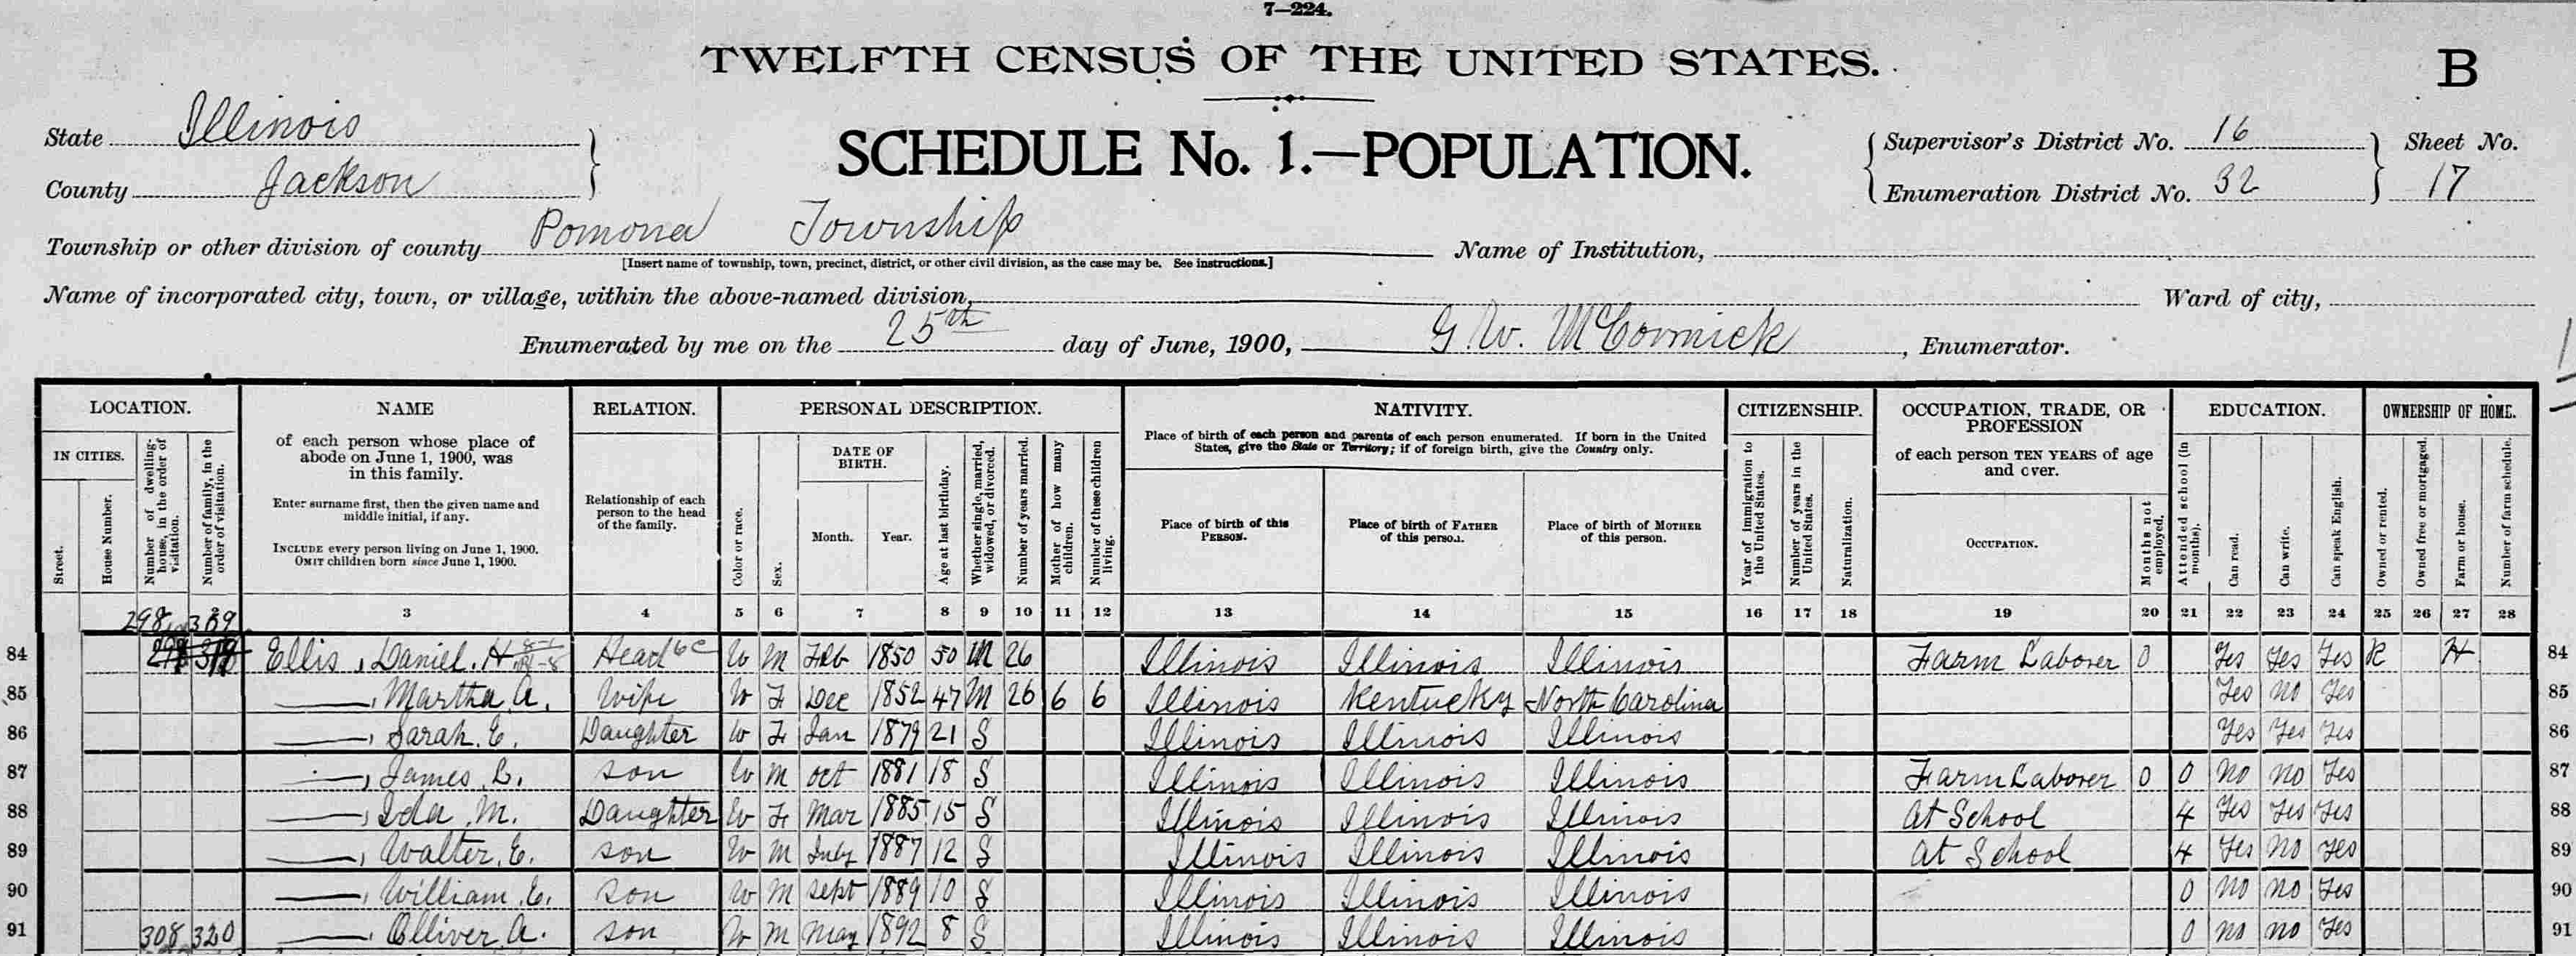 7—224.
TWELFTH CENSUS OF THE UNITED STATES.
B
State Illinois
County Jackson
SCHEDULE No. 1.—POPULATION.
Supervisor's District No. 16
Enumeration District No. 32
Sheet No.
17
Township or other division of county Pomona Township
[Insert name of township, town, precinct, district, or other civil division, as the case may be. See instructions.]
Name of Institution,
Name of incorporated city, town, or village, within the above-named division,
Ward of city,
Enumerated by me on the 25th day of June, 1900, G W. McCormick, Enumerator.
LOCATION.
IN CITIES.
Street.
House Number.
Number of dwelling-house, in the order of visitation.
Number of family, in the order of visitation.
NAME
of each person whose place of
abode on June 1, 1900, was
in this family.
Enter surname first, then the given name and
middle initial, if any.
INCLUDE every person living on June 1, 1900.
OMIT children born since June 1, 1900.
RELATION.
Relationship of each
person to the head
of the family.
PERSONAL DESCRIPTION.
Color or race.
Sex.
DATE OF
BIRTH.
Month. Year.
Age at last birthday.
Whether single, married, widowed, or divorced.
Number of years married.
Mother of how many children.
Number of these children living.
NATIVITY.
Place of birth of each person and parents of each person enumerated. If born in the United
States, give the State or Territory; if of foreign birth, give the Country only.
Place of birth of this
PERSON.
Place of birth of FATHER
of this person.
Place of birth of MOTHER
of this person.
CITIZENSHIP.
Year of immigration to the United States.
Number of years in the United States.
Naturalization.
OCCUPATION, TRADE, OR
PROFESSION
of each person TEN YEARS of age
and over.
OCCUPATION.
Months not employed.
EDUCATION.
Attended school (in months).
Can read.
Can write.
Can speak English.
OWNERSHIP OF HOME.
Owned or rented.
Owned free or mortgaged.
Farm or house.
Number of farm schedule.
3 4 5 6 7 8 9 10 11 12 13 14 15 16 17 18 19 20 21 22 23 24 25 26 27 28
298
84 Ellis, Daniel. H Head W M Feb 1850 50 M 26 Illinois Illinois Illinois Farm Laborer 0 Yes Yes Yes R H 84
85 ——, Martha A. Wife W F Dec 1852 47 M 26 6 6 Illinois Kentucky North Carolina Yes no Yes 85
86 ——, Sarah. E. Daughter W F Jan 1879 21 S Illinois Illinois Illinois Yes Yes Yes 86
87 ——, James L. son W M oct 1881 18 S Illinois Illinois Illinois Farm Laborer 0 0 no no Yes 87
88 ——, Ida. M. Daughter W F Mar 1885 15 S Illinois Illinois Illinois at School 4 Yes Yes Yes 88
89 ——, Walter. E. son W M July 1887 12 S Illinois Illinois Illinois at School 4 Yes no yes 89
90 ——, William. E. son W M sept 1889 10 S Illinois Illinois Illinois 0 no no Yes 90
91 308 320 ——, Olliver A. son W M may 1892 8 S Illinois Illinois Illinois 0 no no Yes 91